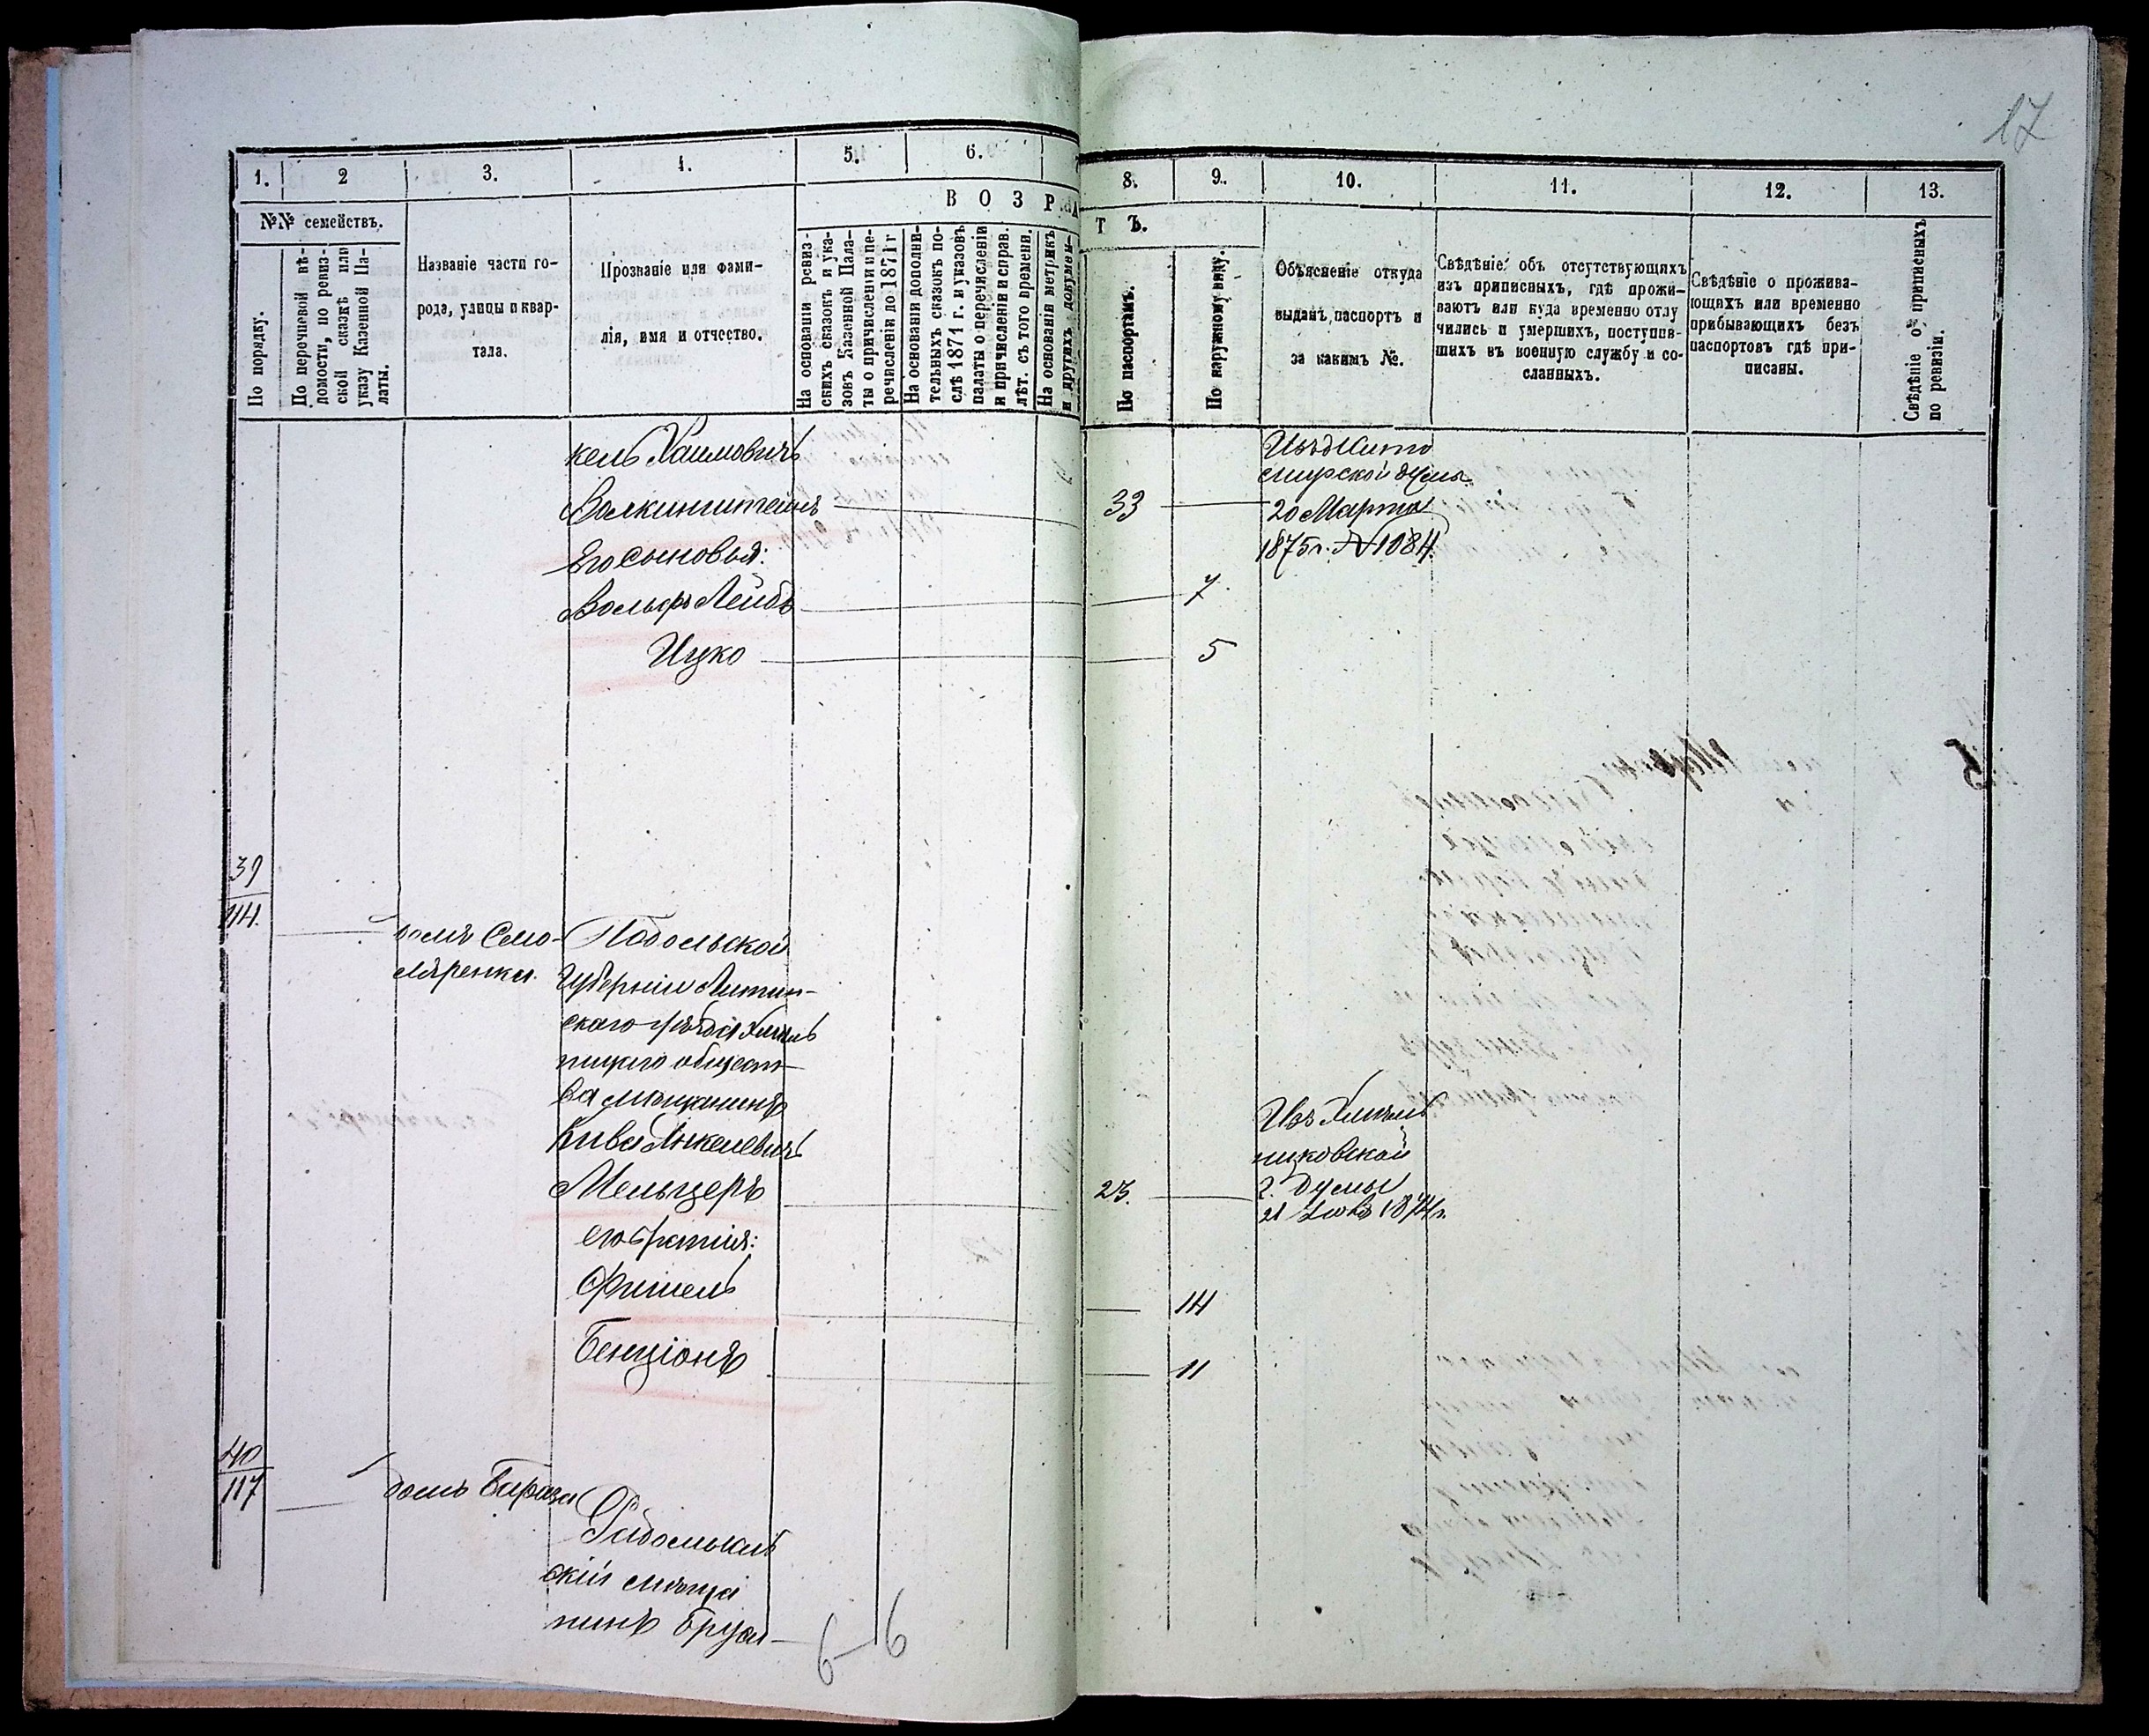 17
1.
2
3.
4.
5.
6.
№№ семействъ.
По порядку.
По перечневой вѣ-
домости, по ревиз-
ской сказкѣ или
указу Казенной Па-
латы.
Названіе части го-
рода, улицы и квар-
тала.
Прозваніе или фами-
лія, имя и отчество.
В О З Р А
На основаніи ревиз-
скихъ сказокъ и ука-
зовъ Казенной Пала-
ты о причисленіи и пе-
речисленіи до 1871 г
На основаніи дополни-
тельныхъ сказокъ по-
слѣ 1871 г. и указовъ
палаты о перечисленіи
и причисленіи и справ.
лѣт. съ того времени.
На основаніи метрикъ
и другихъ докумен-
8.
9.
10.
11.
12.
13.
Т Ъ.
По паспортамъ.
По наружному виду.
Объясненіе откуда
выданъ паспортъ и
за какимъ №.
Свѣдѣніе объ отсутствующихъ
изъ приписныхъ, гдѣ прожи-
ваютъ или куда временно отлу
чились и умершихъ, поступив-
шихъ въ военную службу и со-
сланныхъ.
Свѣдѣніе о прожива-
ющихъ или временно
прибывающихъ безъ
паспортовъ гдѣ при-
писаны.
Свѣдѣніе о приписныхъ
по ревизіи.
кель Хаимовичъ
Волкинштейнъ
33
Изъ Жито
мирской думы
20 Марта
1875 г. №1084.
Его сыновья:
Вольфъ Лейбъ
7
Ицко
5
39
114.
домъ Смо-
ляренка.
Подольской
Губерніи Литин-
скаго уѣзда Хмѣль
ницкаго общест-
ва мѣщанинъ
Кива Янкелевичъ
Мельцеръ
23.
Изъ Хмѣль
никовской
г. Думы
21 1874 г.
его братья:
Фишель
14
Бенціонъ
11
40
117
домъ
Радомысль
скій мѣща
нинъ
6-6